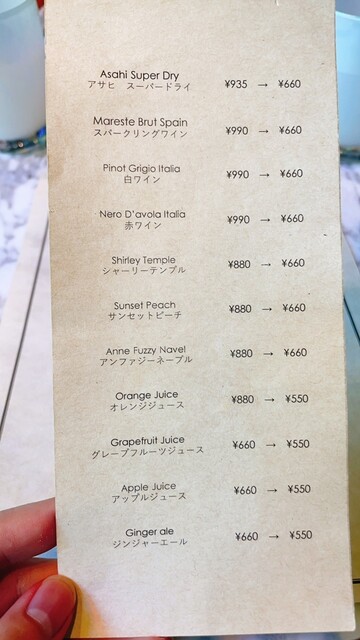 Asahi Super Dry ¥935 → ¥660
アサヒ スーパードライ
Mareste Brut Spain ¥990 → ¥660
スパークリングワイン
Pinot Grigio Italia ¥990 → ¥660
白ワイン
Nero D'avola Italia ¥990 → ¥660
赤ワイン
Shirley Temple ¥880 → ¥660
シャーリーテンプル
Sunset Peach ¥880 → ¥660
サンセットピーチ
Anne Fuzzy Navel ¥880 → ¥660
アンファジーネーブル
Orange Juice ¥880 → ¥550
オレンジジュース
Grapefruit Juice ¥660 → ¥550
グレープフルーツジュース
Apple Juice ¥660 → ¥550
アップルジュース
Ginger ale ¥660 → ¥550
ジンジャーエール